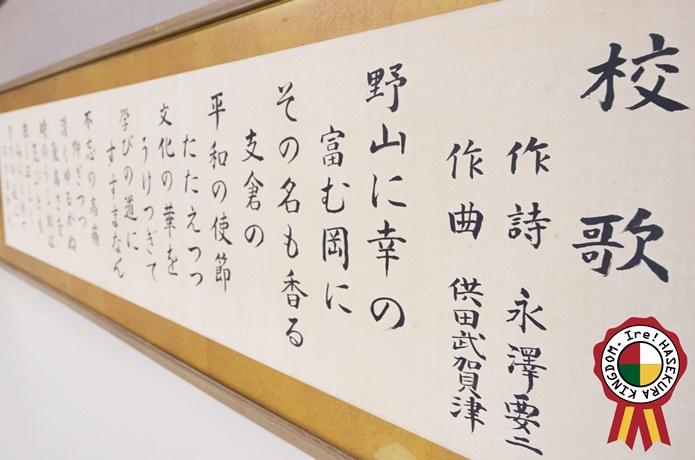 校歌
作詩 永澤要二
作曲 供田武賀津
野山に幸の
富む岡に
その名も香る
支倉の
平和の使節
たたえつつ
文化の華を
うけつぎて
学びの道に
すすまなん
不忘の高嶺
仰ぎつつ
Ire! HASEKURA KINGDOM.